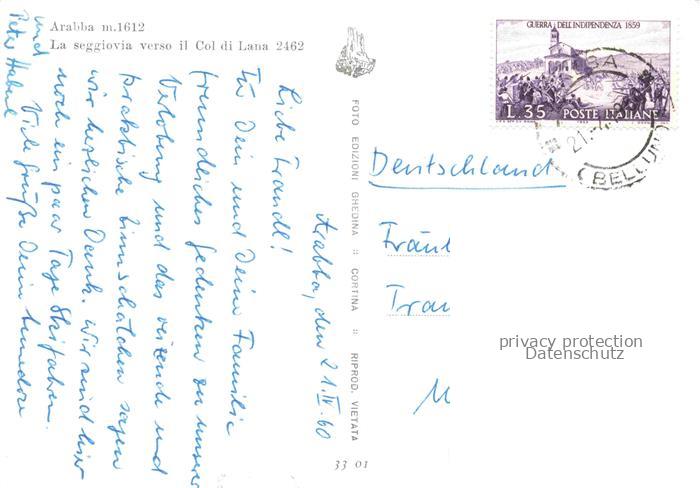 Arabba m.1612
La seggiovia verso il Col di Lana 2462
GUERRA DELL'INDIPENDENZA 1859
L.35 POSTE ITALIANE
21.
(BELLUNO)
FOTO EDIZIONI GHEDINA :: CORTINA :: RIPROD. VIETATA
33 01
Arabba, den 21.IV.60
Liebe Traudl!
Für Dein und Deine Familie
freundliches Gedenken zu unserer
Verlobung und das reizende und
praktische Zinnschälchen sagen
wir herzlichen Dank. Wir sind hier
noch ein paar Tage Skifahren.
Viele Grüße Deine
und
Peter
Deutschland
Fräul
Trau
M
privacy protection
Datenschutz